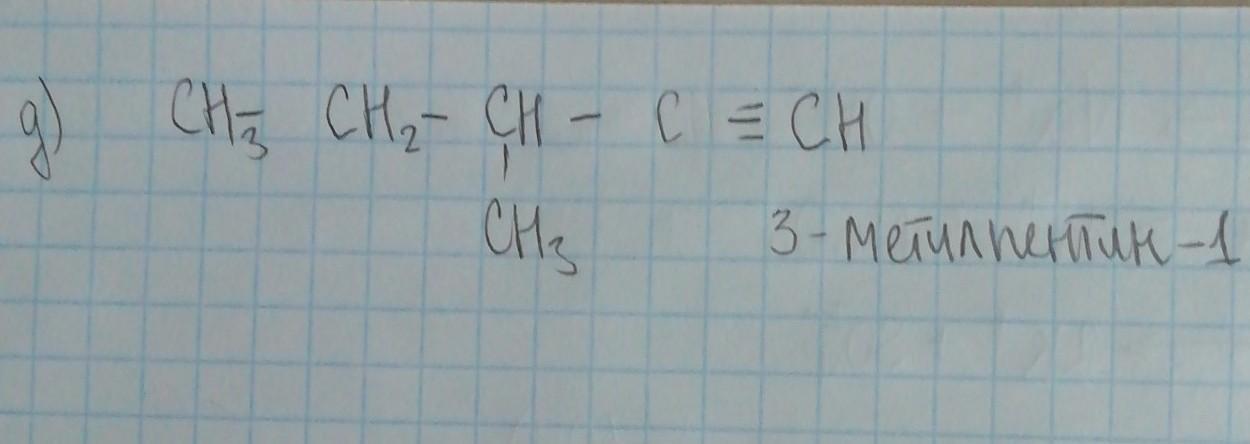 д) CH₃- CH₂- CH - C ≡ CH
CH₃ 3-метилпентин-1